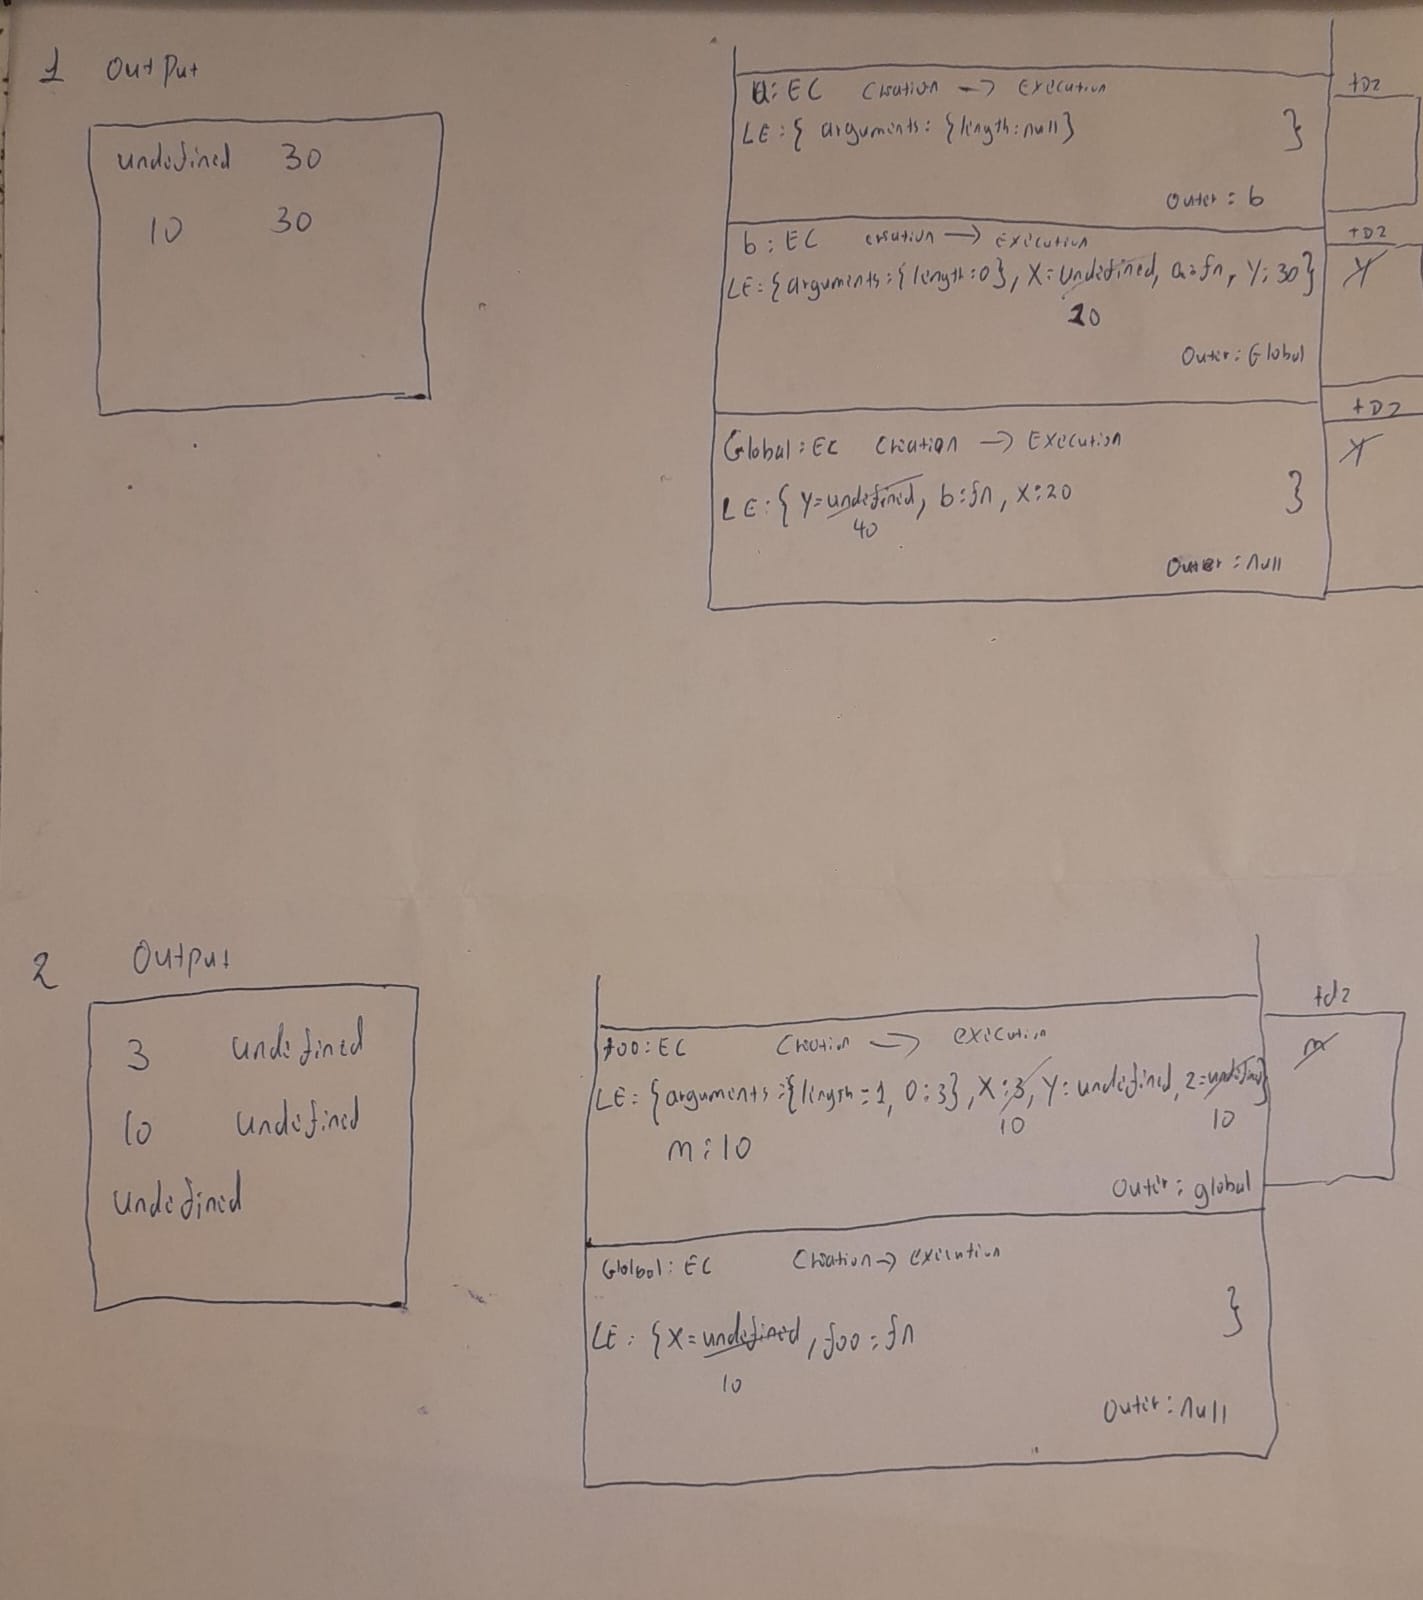 1 Output
undefined 30
10 30
a: EC Creation → Execution
LE: { arguments: {length: null} }
Outer: b
TDZ
b: EC creation → Execution
LE: {arguments: {length: 0}, X = undefined, a: fn, Y: 30}
20
Outer: Global
TDZ
Y
Global: EC Creation → Execution
LE: { Y = undefined, b: fn, X: 20 }
40
Outer: null
TDZ
X
2 Output
3 undefined
10 undefined
undefined
foo: EC Creation → execution
LE: {arguments: {length = 1, 0: 3}, X: 3, Y: undefined, z = undefined}
10 10
m: 10
Outer: global
tdz
m
Glolbol: EC Creation → execution
LE: {X = undefined, foo: fn }
10
Outer: null